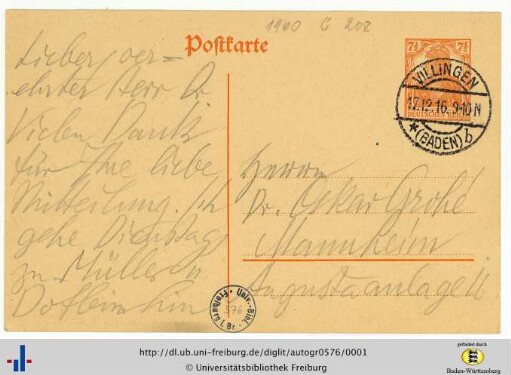 1960 C 202
Postkarte
7½ 7½
DEUTSCHES REICH
VILLINGEN
17.12.16. 9-10 N
*(BADEN) b
Lieber, ver=
ehrter Herr Dr.
Vielen Dank
für Ihre liebe
Mitteilung. Ich
gehe Dienstag
zu Müller u.
Dotleim hin
Herrn
Dr. Oskar Grohé
Mannheim
Augustaanlage 16
Univ.-Bibl. Freiburg i. Br.
576
http://dl.ub.uni-freiburg.de/diglit/autogr0576/0001
© Universitätsbibliothek Freiburg
gefördert durch
Baden-Württemberg